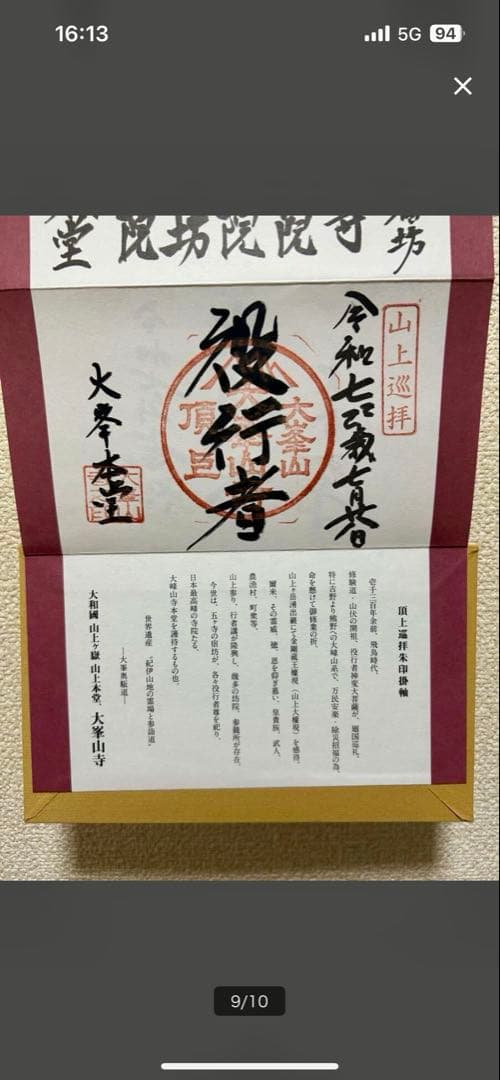 16:13
5G
94
坊
寺
院
院
坊
院
堂
山上巡拝
令和七乙
役行者
大峯山
頂
大峯本堂
頂上巡拝朱印掛軸
壱千三百年余前、飛鳥時代、
修験道・山伏の開祖、役行者神変大菩薩が、廻国巡礼、
特に吉野より熊野への大峰山系で、万民安楽・除災招福の為、
命を懸けて御修業の折、
山上ヶ岳湧出巌にて金剛蔵王権現(山上大権現)を感得。
爾来、その霊威、徳、恩を仰ぎ慕い、皇貴族、武人、
農漁村、町衆等、
山上参り、行者講が隆興し、幾多の坊院、参籠所が存在。
今世は、五ヶ寺の宿坊が、各々役行者尊を祀り、
日本最高峰の寺院たる、
大峰山寺本堂を護持するもの也。
世界遺産 "紀伊山地の霊場と参詣道"
―大峯奥駈道―
大和國 山上ヶ嶽 山上本堂、大峯山寺
9/10